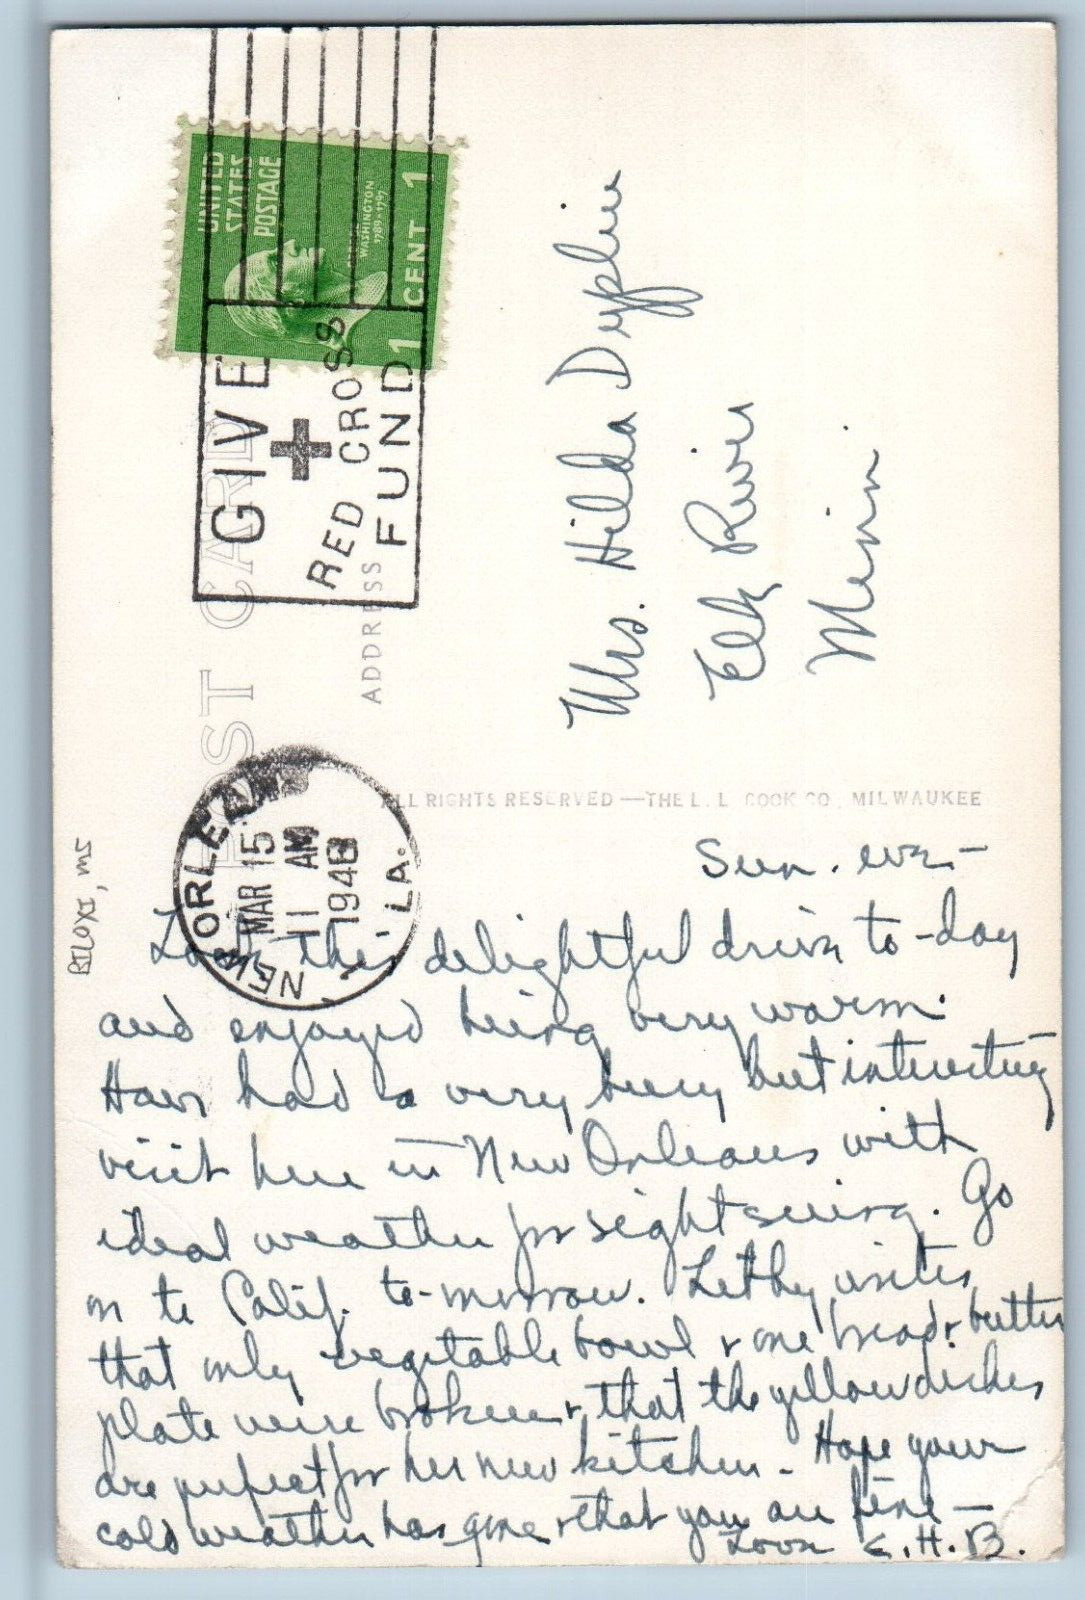 UNITED
STATES
POSTAGE
GEORGE
WASHINGTON
1789-1797
1 CENT 1
GIVE
RED CROSS
FUND
POST CARD
ADDRESS
Mrs. Hilda
Elk River
Minn.
NEW ORLEANS
MAR 15
11 AM
LA.
ALL RIGHTS RESERVED — THE L. L. COOK CO., MILWAUKEE
BILOXI, MS
Sun. eve —
Took this delightful drive to-day
and enjoyed being very warm.
Have had a very busy but interesting
visit here in New Orleans with
ideal weather for sightseeing. Go
on to Calif. to-morrow. writes
that only vegetable bowl & one bread & butter
plate were broken & that the yellow dishes
are perfect for her new kitchen - Hope your
cold weather has gone & that you are fine —
Love E.H.B.